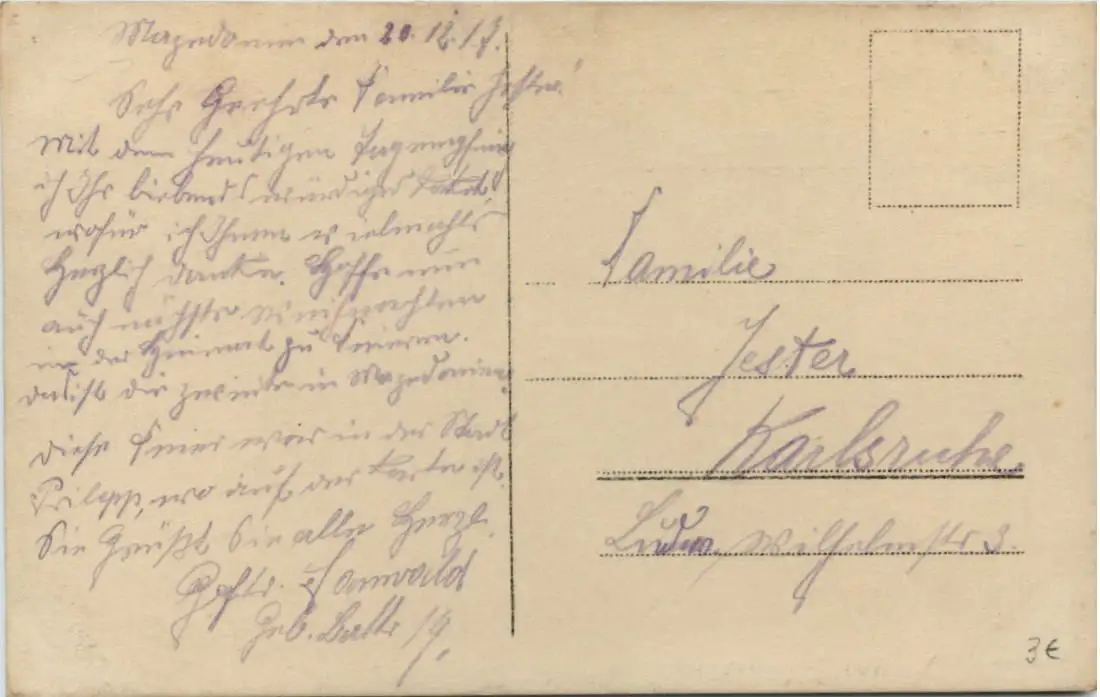 Mazedonien den 20.12.17.
Sehr Geehrte Familie Jester!
Mit dem heutigen Tag empfing
ich Ihr liebenswürdiges Paket
wofür ich Ihnen vielmahls
Herzlich danke. Hoffe nun
auch nächste Weihnachten
in der Heimat zu feiern.
das ist die zweite in Mazedonien
Diese Feier war in der Stadt
Prilepp, wo auf der Karte ist.
Sie Grüßt Sie alle Herzl.
Gefr.
Geb. Battr
Familie
Jester
Karlsruhe
Ludw. Wilhelmstr 3.
3€